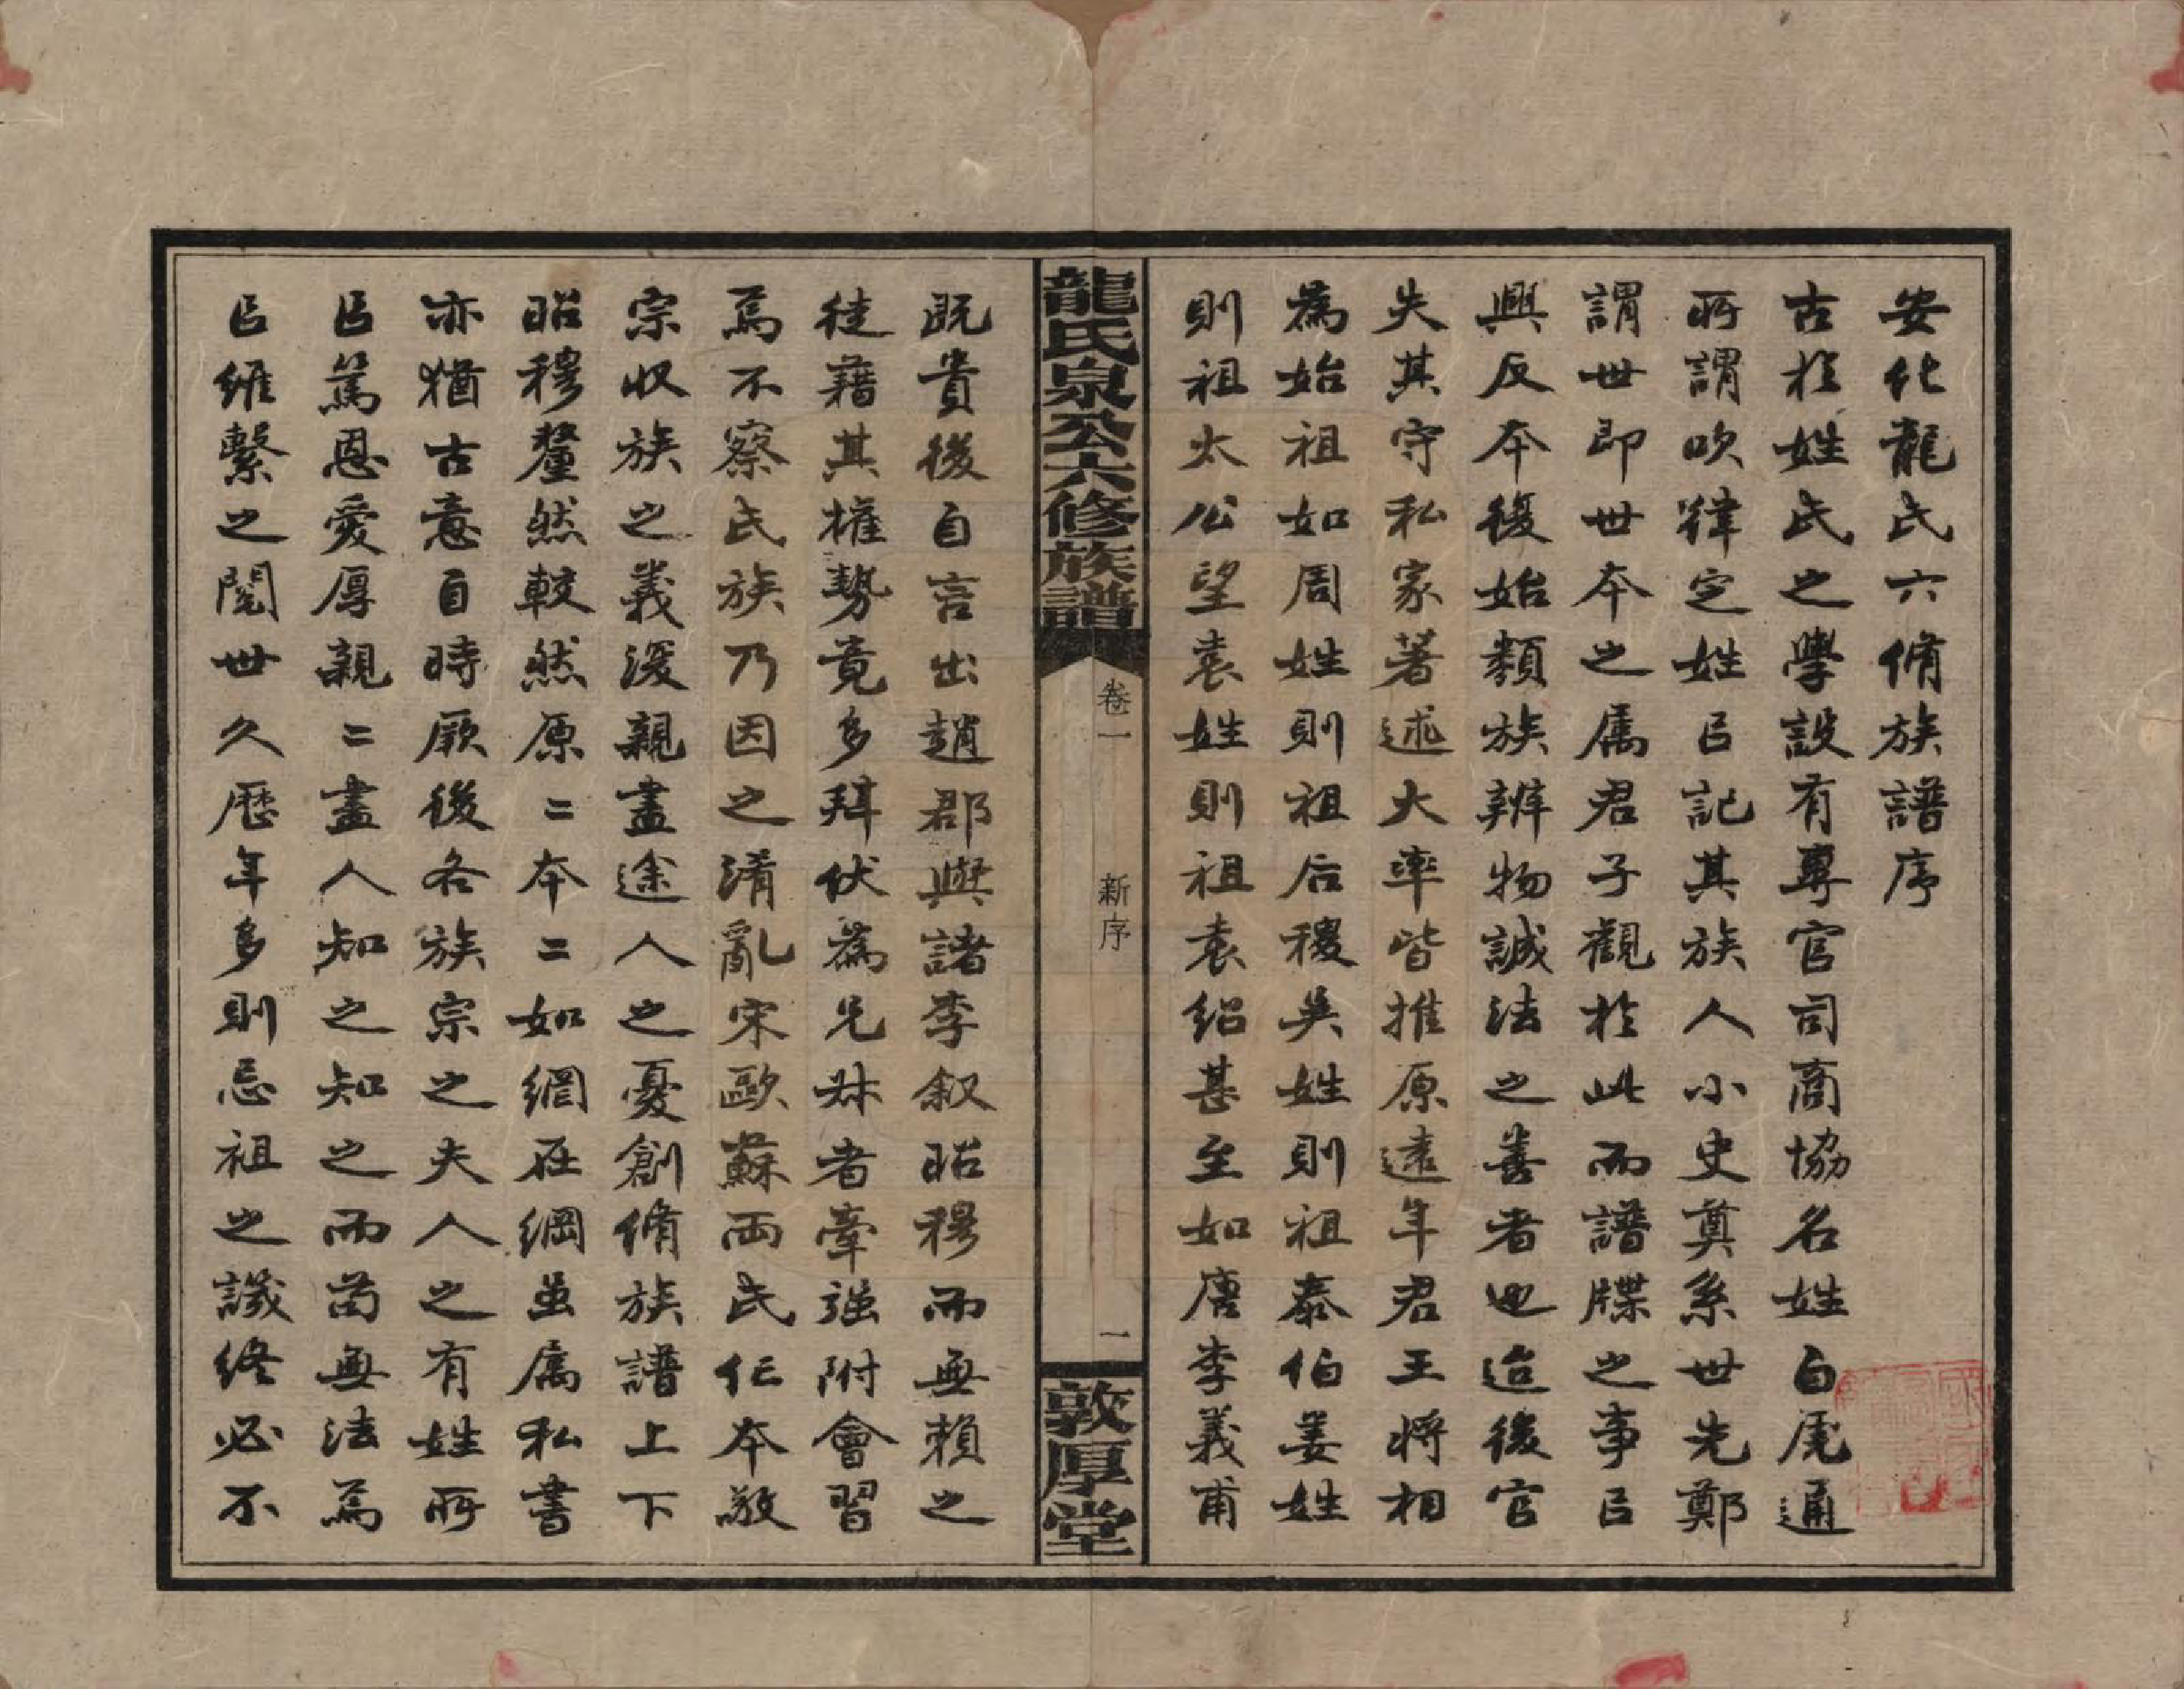 安化龍氏六脩族譜序
古於姓氏之學設有專官司商協名姓白虎通
所謂吹律定姓㠯記其族人小史奠系世先鄭
謂世即世本之属君子觀於此而譜牒之事㠯
興反本復始類族辨物誠法之善者也迨後官
失其守私家著述大率皆推原遠年君王將相
為始祖如周姓則祖后稷吳姓則祖泰伯姜姓
則祖太公望袁姓則祖袁紹甚至如唐李義甫
龍氏泉公六修族譜
卷一
新序
一
敦厚堂
既貴後自言出趙郡與諸李叙昭穆而無賴之
徒藉其權勢竟多拜伏為兄叔者牽强附會習
焉不察氏族乃因之淆亂宋歐蘇兩氏仁本敬
宗收族之義湥親盡途人之憂創脩族譜上下
昭穆釐然較然原二本二如網在綱虽属私書
亦猶古意自時厥後各族宗之夫人之有姓所
㠯篤恩愛厚親二盡人知之知之而苟無法焉
㠯維繫之閲世久歷年多則忘祖之譏終必不